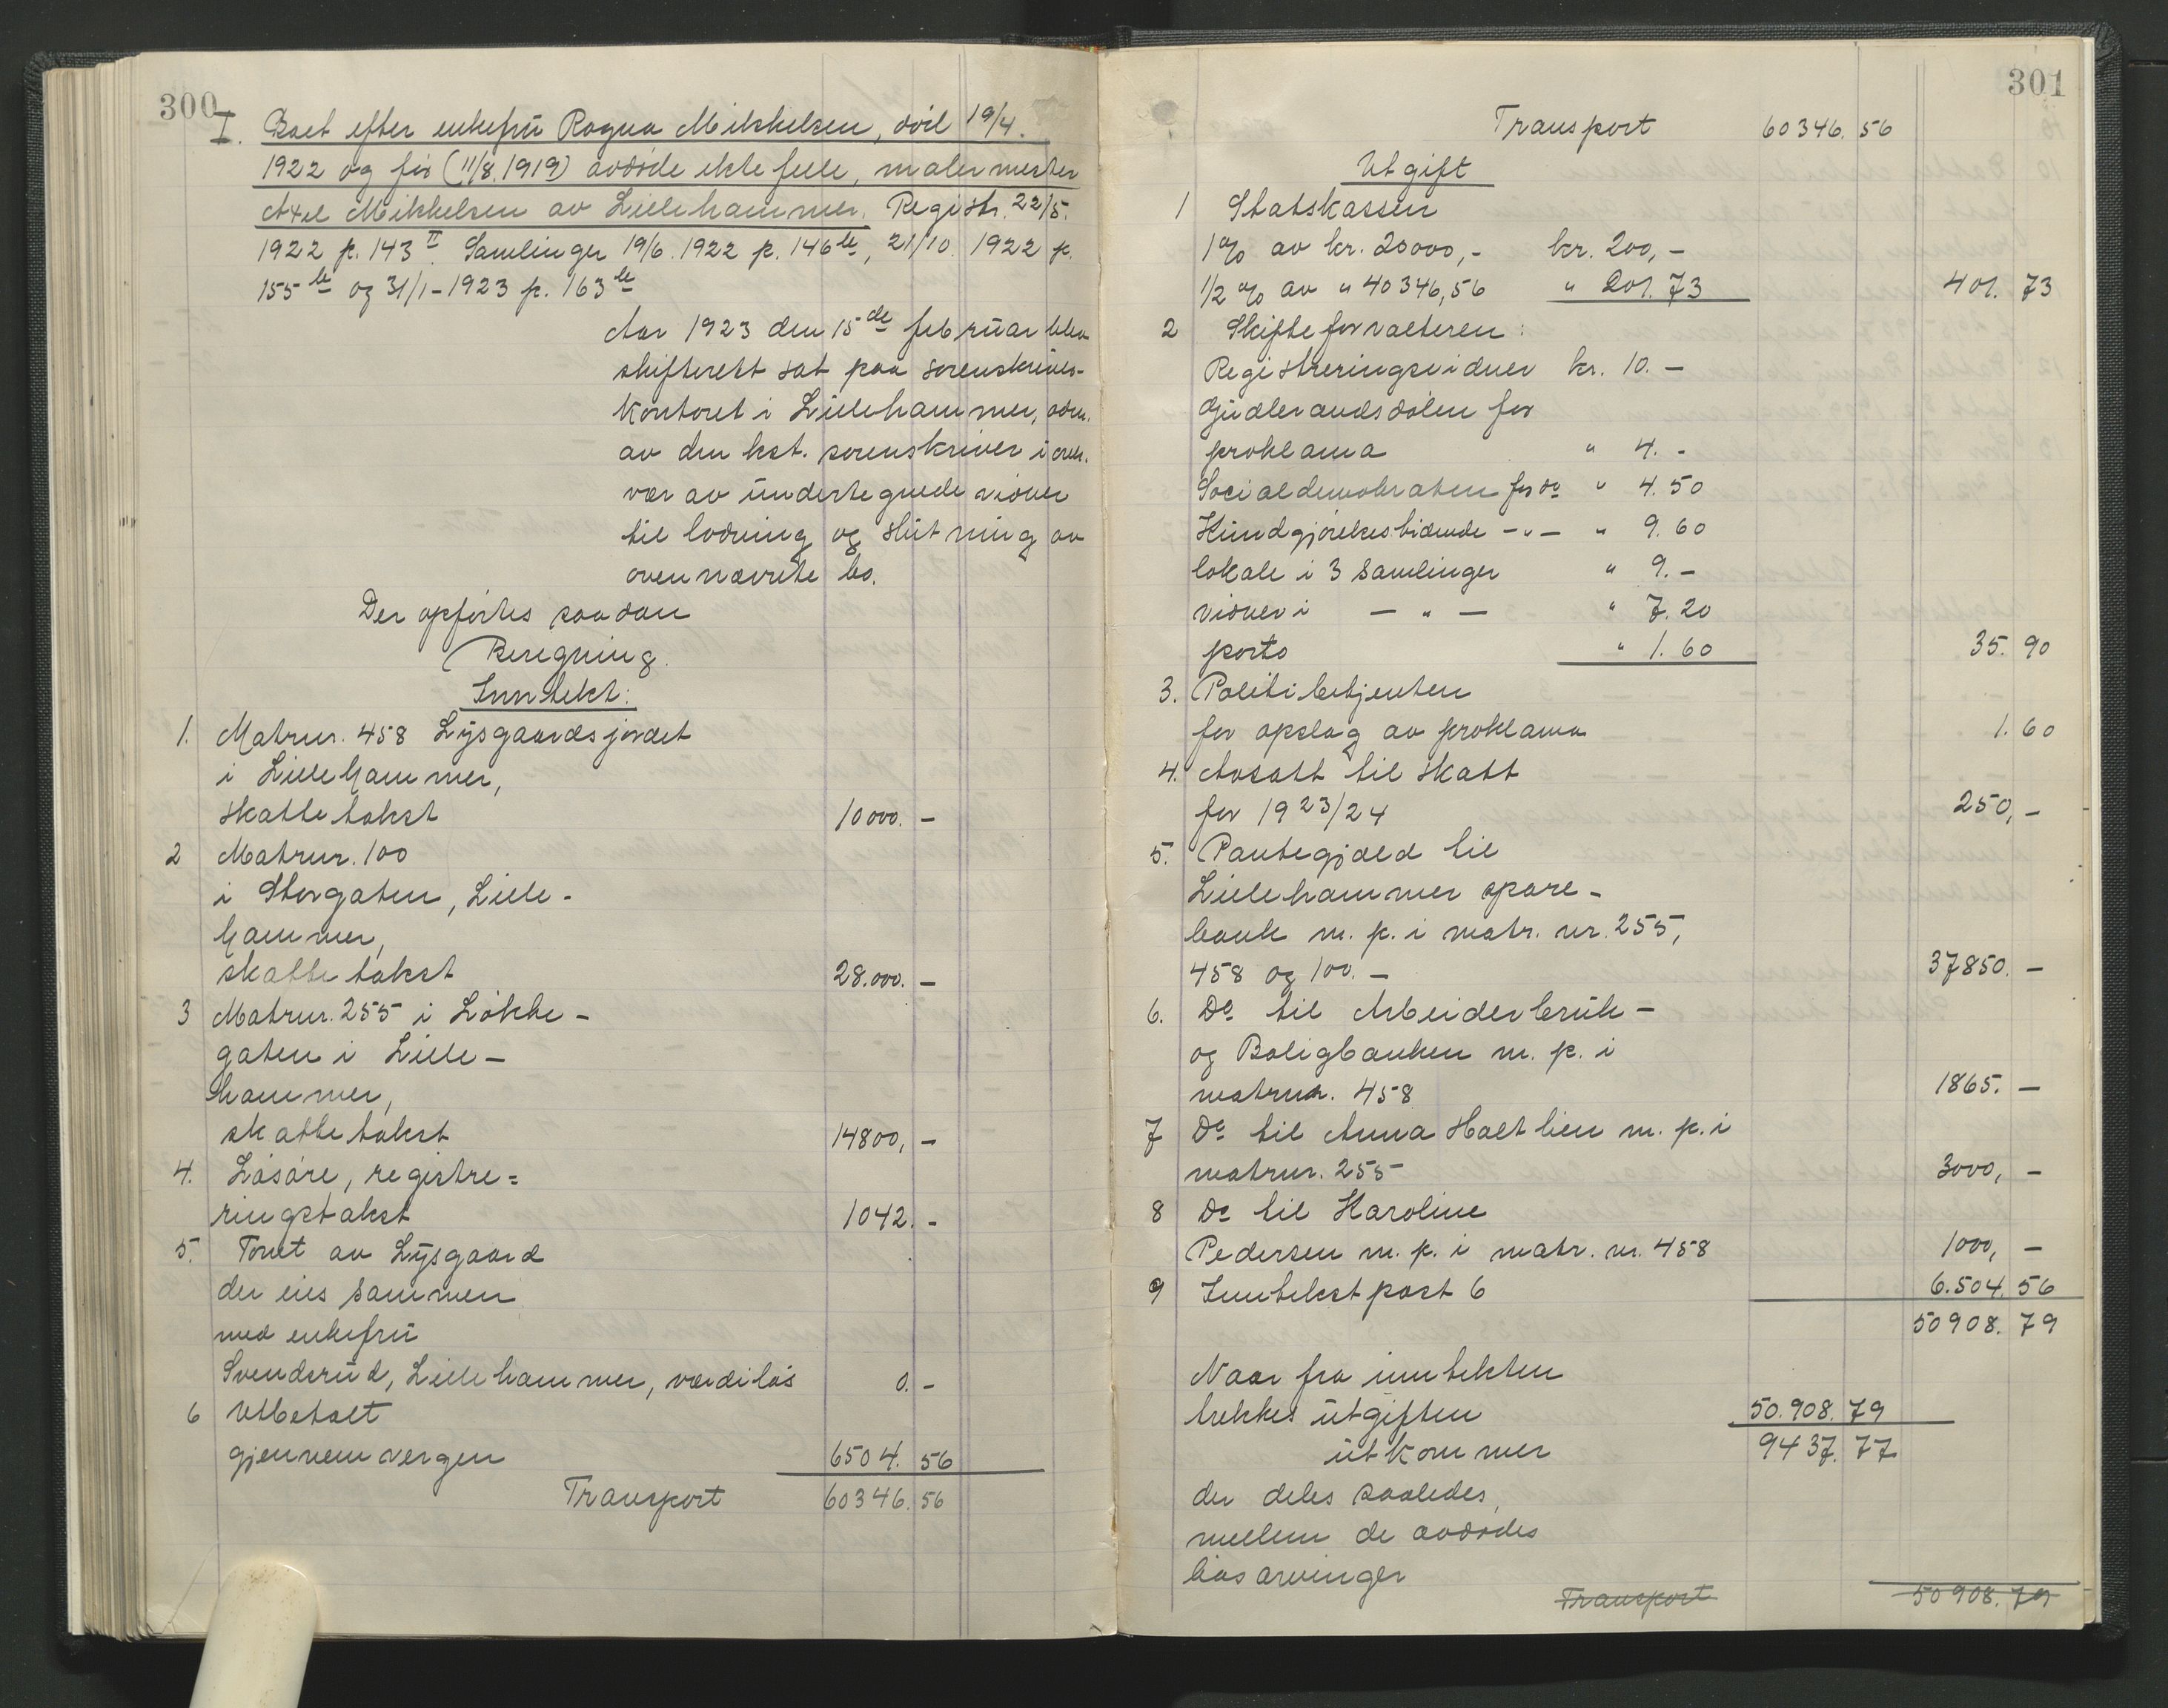 300
I. Boet efter enkefru Ragna Mikkelsen, død 19/4.
1922 og før (11/8. 1919) avdøde ektefelle, malermester
Axel Mikkelsen av Lillehammer. Registr. 22/5.
1922 p. 143 II. Samlinger 19/6. 1922 p. 146 te, 21/10. 1922 p.
155 te og 31/1 - 1923 p. 163 te
Aar 1923 den 15de februar blev
skifterett sat paa sorenskriver-
kontoret i Lillehammer, adm.
av den kst. sorenskriver i over-
vær av undertegnede vidner
til lodning og slutning av
ovennævnte bo.
Der opførtes saadan
Beregning.
Inntekt:
1. Matrnr. 458 Lysgaardsjordet
i Lillehammer,
skattetakst 10000. -
2 Matrnr. 100
i Storgaten, Lille-
hammer,
skattetakst 28.000. -
3 Matrnr. 255 i Løkke-
gaten i Lille-
hammer,
skattetakst 14800, -
4. Løsøre, registre=
ringstakst 1042. -
5. Tomt av Lysgaard
der eies sammen
med enkefru
Svendsrud, Lillehammer, værdiløs 0. -
6 Utbetalt
gjennem vergen 6504. 56
Transport 60346. 56
301
Transport 60346. 56
Utgift
1 Statskassen
1% av kr. 20000,- kr. 200,-
1/2 % av " 40346,56 " 201.73 401. 73
2 Skifteforvalteren:
Registreringsvidner kr. 10. -
Gudbrandsdølen for
proklama " 4. -
Socialdemokraten for do " 4.50
Kundgjørelsestidende -"- " 9.60
lokale i 3 samlinger " 9. -
vidner i - " - " 7.20
porto " 1.60 35. 90
3. Politibetjenten
for opslag av proklama 1. 60
4. Avsatt til skatt
for 1923/24 250, -
5. Pantegjæld til
Lillehammer spare-
bank m. p. i matr. nr. 255,
458 og 100. - 37850. -
6. Do til Arbeiderbruk-
og Boligbanken m. p. i
matrnr. 458 1865. -
7 Do til Anna Holtlien m. p. i
matrnr. 255 3000, -
8 Do til Karoline
Pedersen m. p. i matr. nr. 458 1000, -
9 Inntektspost 6 6.504. 56
50908. 79
Naar fra inntekten
trekkes utgiften 50.908. 79
utkommer 9437. 77
der deles saaledes,
mellem de avdødes
livsarvinger
Transport 50908. 79